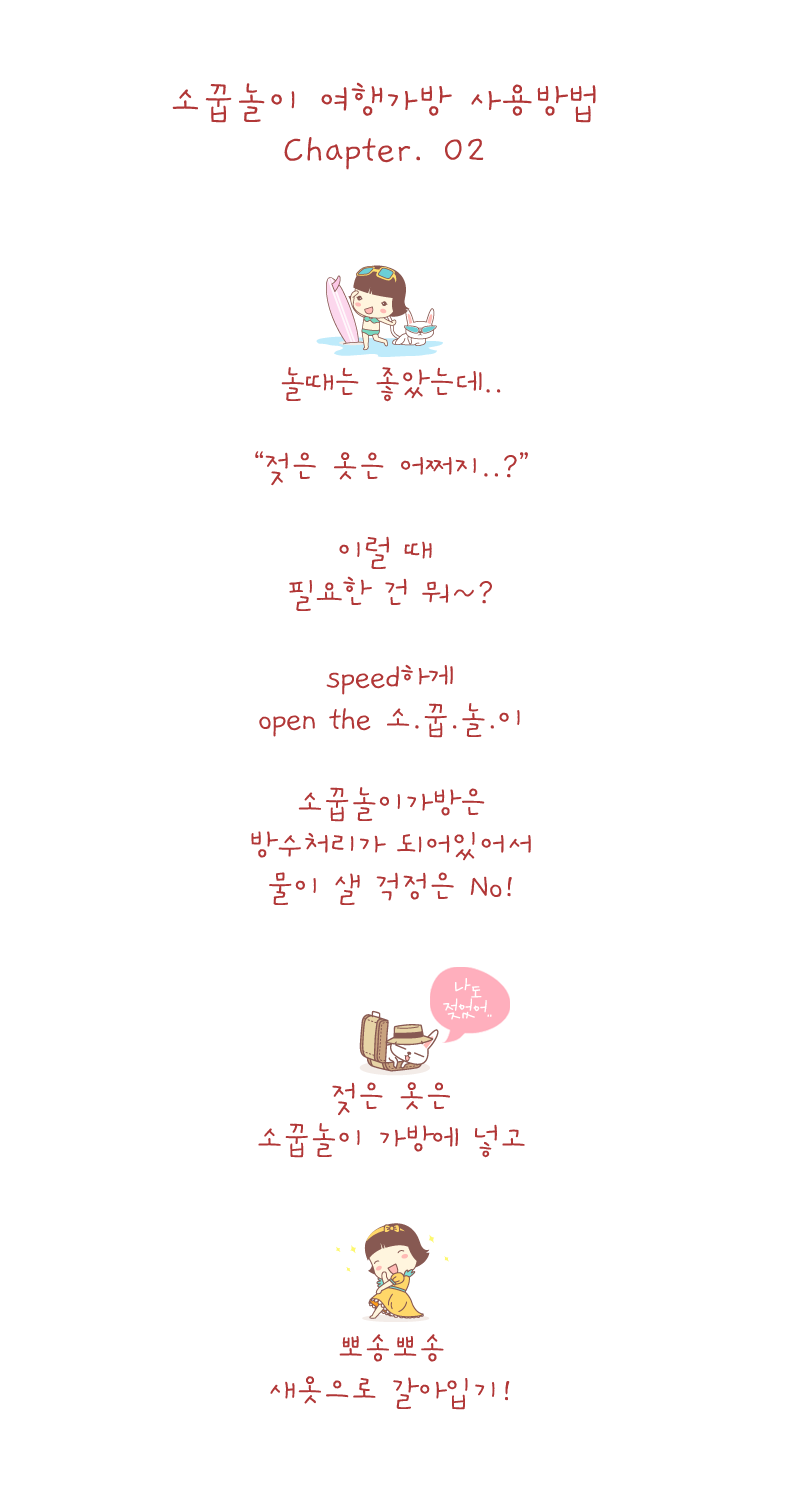 소꿉놀이 여행가방 사용방법
Chapter. 02
놀때는 좋았는데..
“젖은 옷은 어쩌지..?”
이럴 때
필요한 건 뭐~?
speed하게
open the 소.꿉.놀.이
소꿉놀이가방은
방수처리가 되어있어서
물이 샐 걱정은 No!
나도
젖었어..
젖은 옷은
소꿉놀이 가방에 넣고
뽀송뽀송
새옷으로 갈아입기!